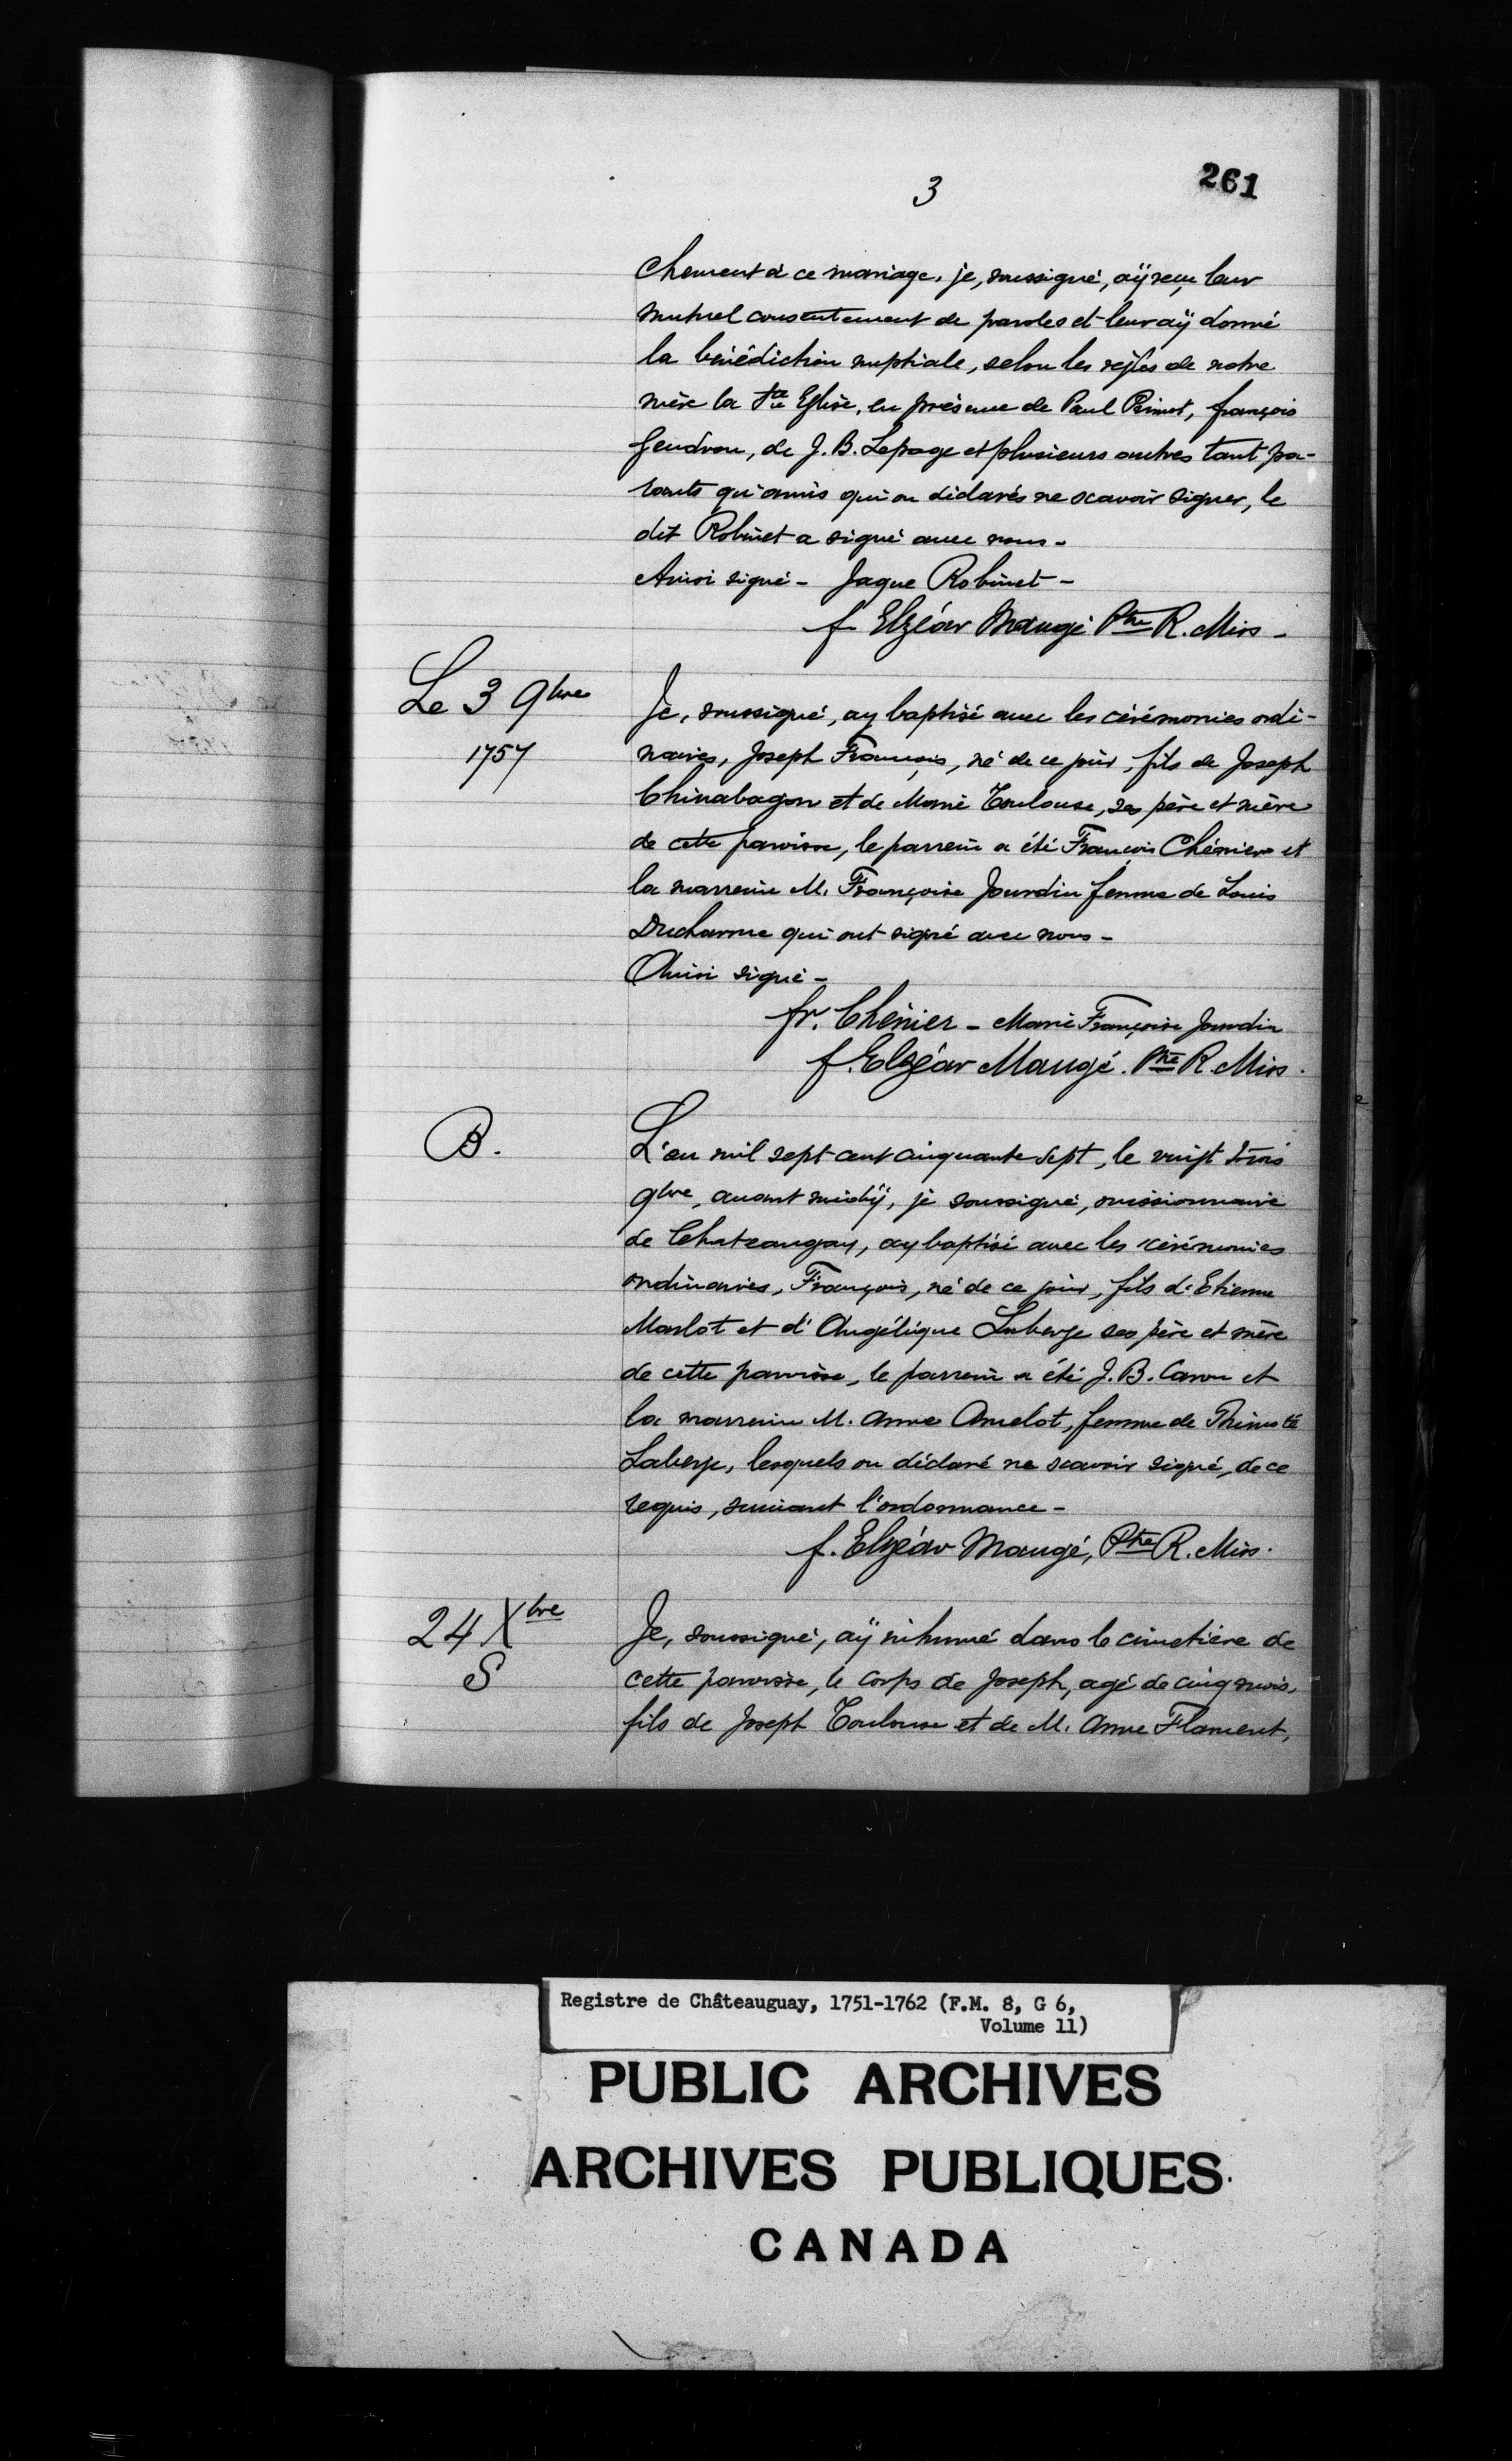 261
3
chement à ce mariage. je, soussigné, aÿ reçu leur
mutuel consentement de paroles et leur aÿ donné
la bénédiction nuptiale, selon les règles de notre
mère la Ste Eglise, en présence de Paul Primot, françois
Gendron, de J. B. Lepage et plusieurs autres tant pa-
rents qu'amis qui on déclarés ne scavoir signer, le
dit Robinet a signé avec nous -
Ainsi signé - Jaque Robinet -
f. Elzéar Maugé Ptre R. Miss -
Le 3 9bre
1757
Je, soussigné, ay baptisé avec les cérémonies ordi-
naires, Joseph François, né de ce jour, fils de Joseph
Chinabagon et de Marie Toulouse, ses père et mère
de cette paroisse, le parrein a été François Chénier et
la marreine M. Françoise Jourdin femme de Louis
Ducharme qui ont signé avec nous -
Ainsi signé -
fr. Chénier - Marie Françoise Jourdin
f. Elzéar Maugé. Ptre R. Miss.
B.
L'an mil sept cent cinquante sept, le vingt trois
9bre, avant midÿ, je soussigné, missionnaire
de Chateaugay, ay baptisé avec les cérémonies
ordinaires, François, né de ce jour, fils d'Etienne
Marlot et d'Angélique Laberge ses père et mère
de cette paroisse, le parrein a été J. B. Caron et
la marreine M. Anne Amelot, femme de Thimoté
Laberge, lesquels on déclaré ne scavoir signé, de ce
requis, suivant l'ordonnance -
f. Elzéar Maugé, Ptre R. Miss.
24 Xbre
S
Je, soussigné, aÿ inhumé dans le cimetière de
cette paroisse, le corps de Joseph, agé de cinq mois,
fils de Joseph Toulouse et de M. Anne Flament,
Registre de Châteauguay, 1751-1762 (F.M. 8, G 6,
Volume 11)
PUBLIC ARCHIVES
ARCHIVES PUBLIQUES
CANADA